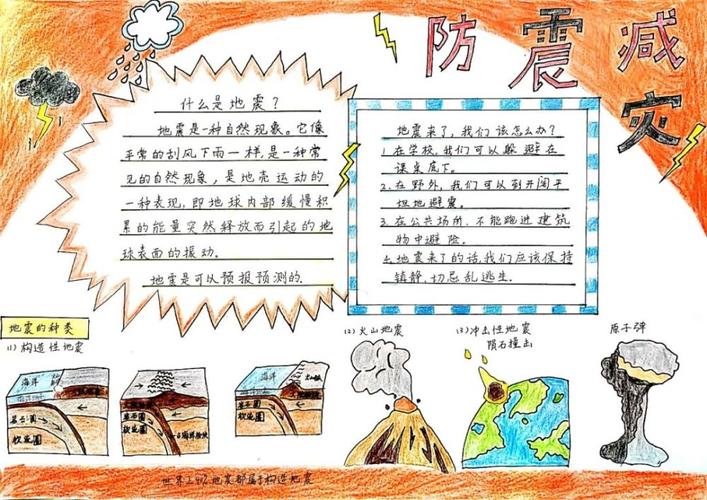 防震减灾
什么是地震？
地震是一种自然现象。它像
平常的刮风下雨一样，是一种常
见的自然现象，是地壳运动的
一种表现，即地球内部缓慢积
累的能量突然释放而引起的地
球表面的振动。
地震是可以预报预测的.
地震来了，我们该怎么办？
1.在学校，我们可以躲避在
课桌底下。
2.在野外，我们可以到开阔平
坦地避震。
3.在公共场所，不能跳进建筑
物中避险。
4.地震来了的话，我们应该保持
镇静，切忌乱逃生.
地震的种类
(1)构造性地震
海洋
岩石圈
软流圈
岩石圈
软流圈
海洋
岩石圈
软流圈
(2)火山地震
(3)冲击性地震
陨石撞出
原子弹
地震都属于构造地震